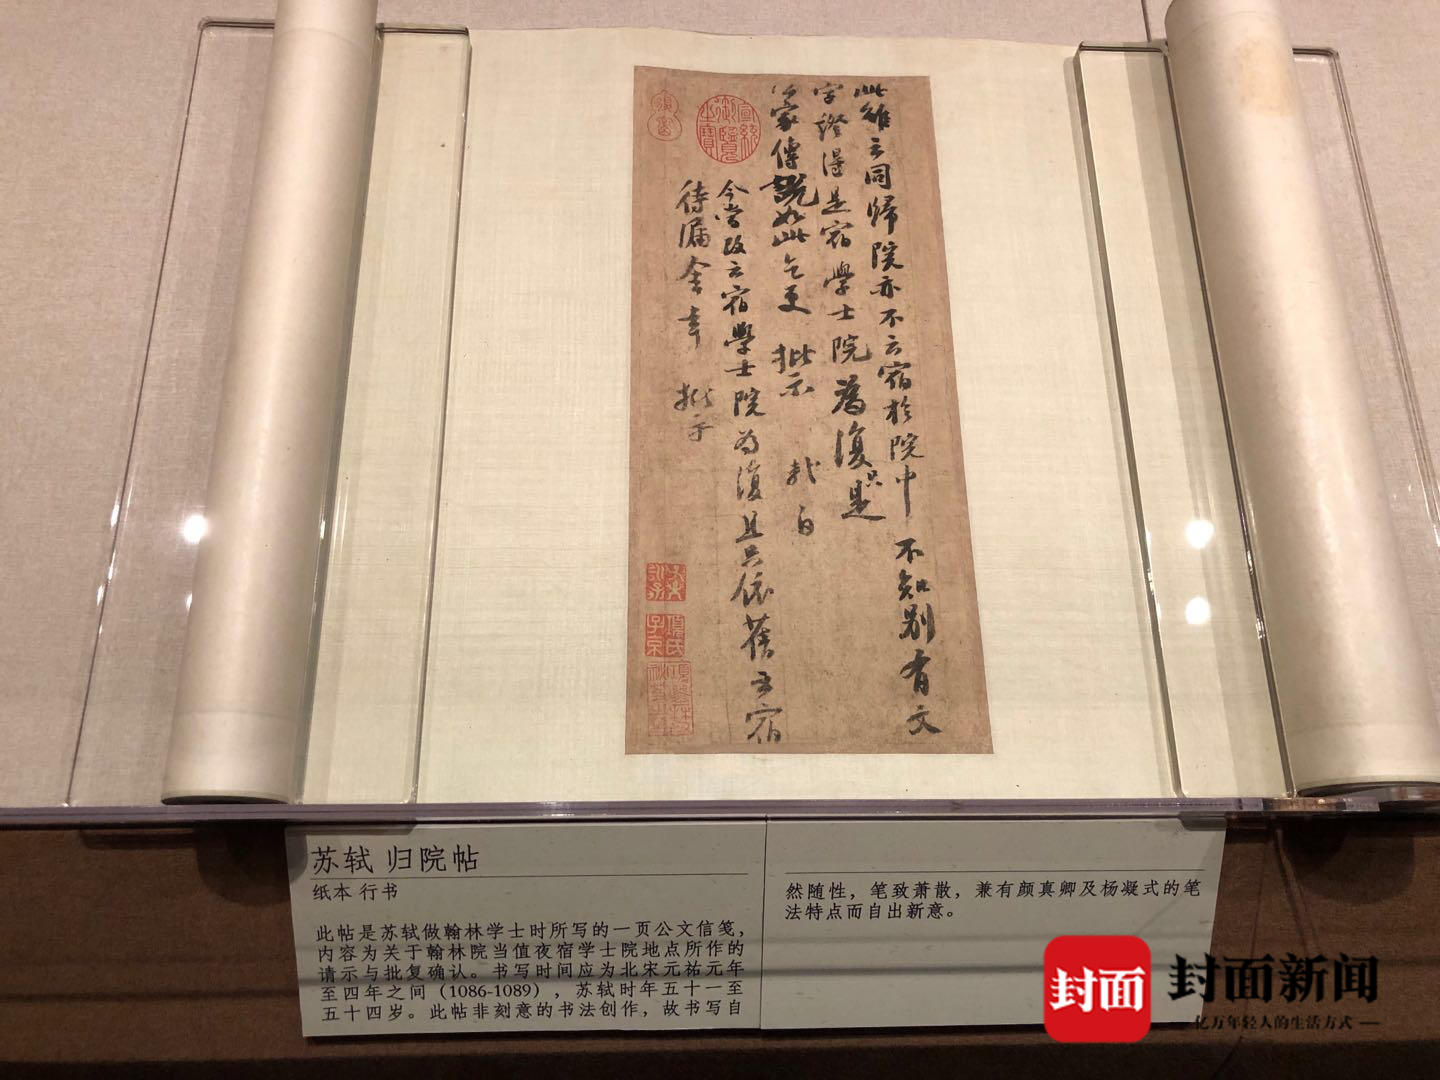 此雖云同歸院亦不云宿於院中 不知別有文
字證得是宿學士院為復只是
家傳説如此乞更 批示 軾白
今當改云宿學士院為復且只依舊云宿
待漏舍幸 批示
宣統御覽之寶
項氏子京
苏轼 归院帖
纸本 行书
此帖是苏轼做翰林学士时所写的一页公文信笺，
内容为关于翰林院当值夜宿学士院地点所作的
请示与批复确认。书写时间应为北宋元祐元年
至四年之间（1086-1089），苏轼时年五十一至
五十四岁。此帖非刻意的书法创作，故书写自
然随性，笔致萧散，兼有颜真卿及杨凝式的笔
法特点而自出新意。
封面
封面新闻
亿万年轻人的生活方式